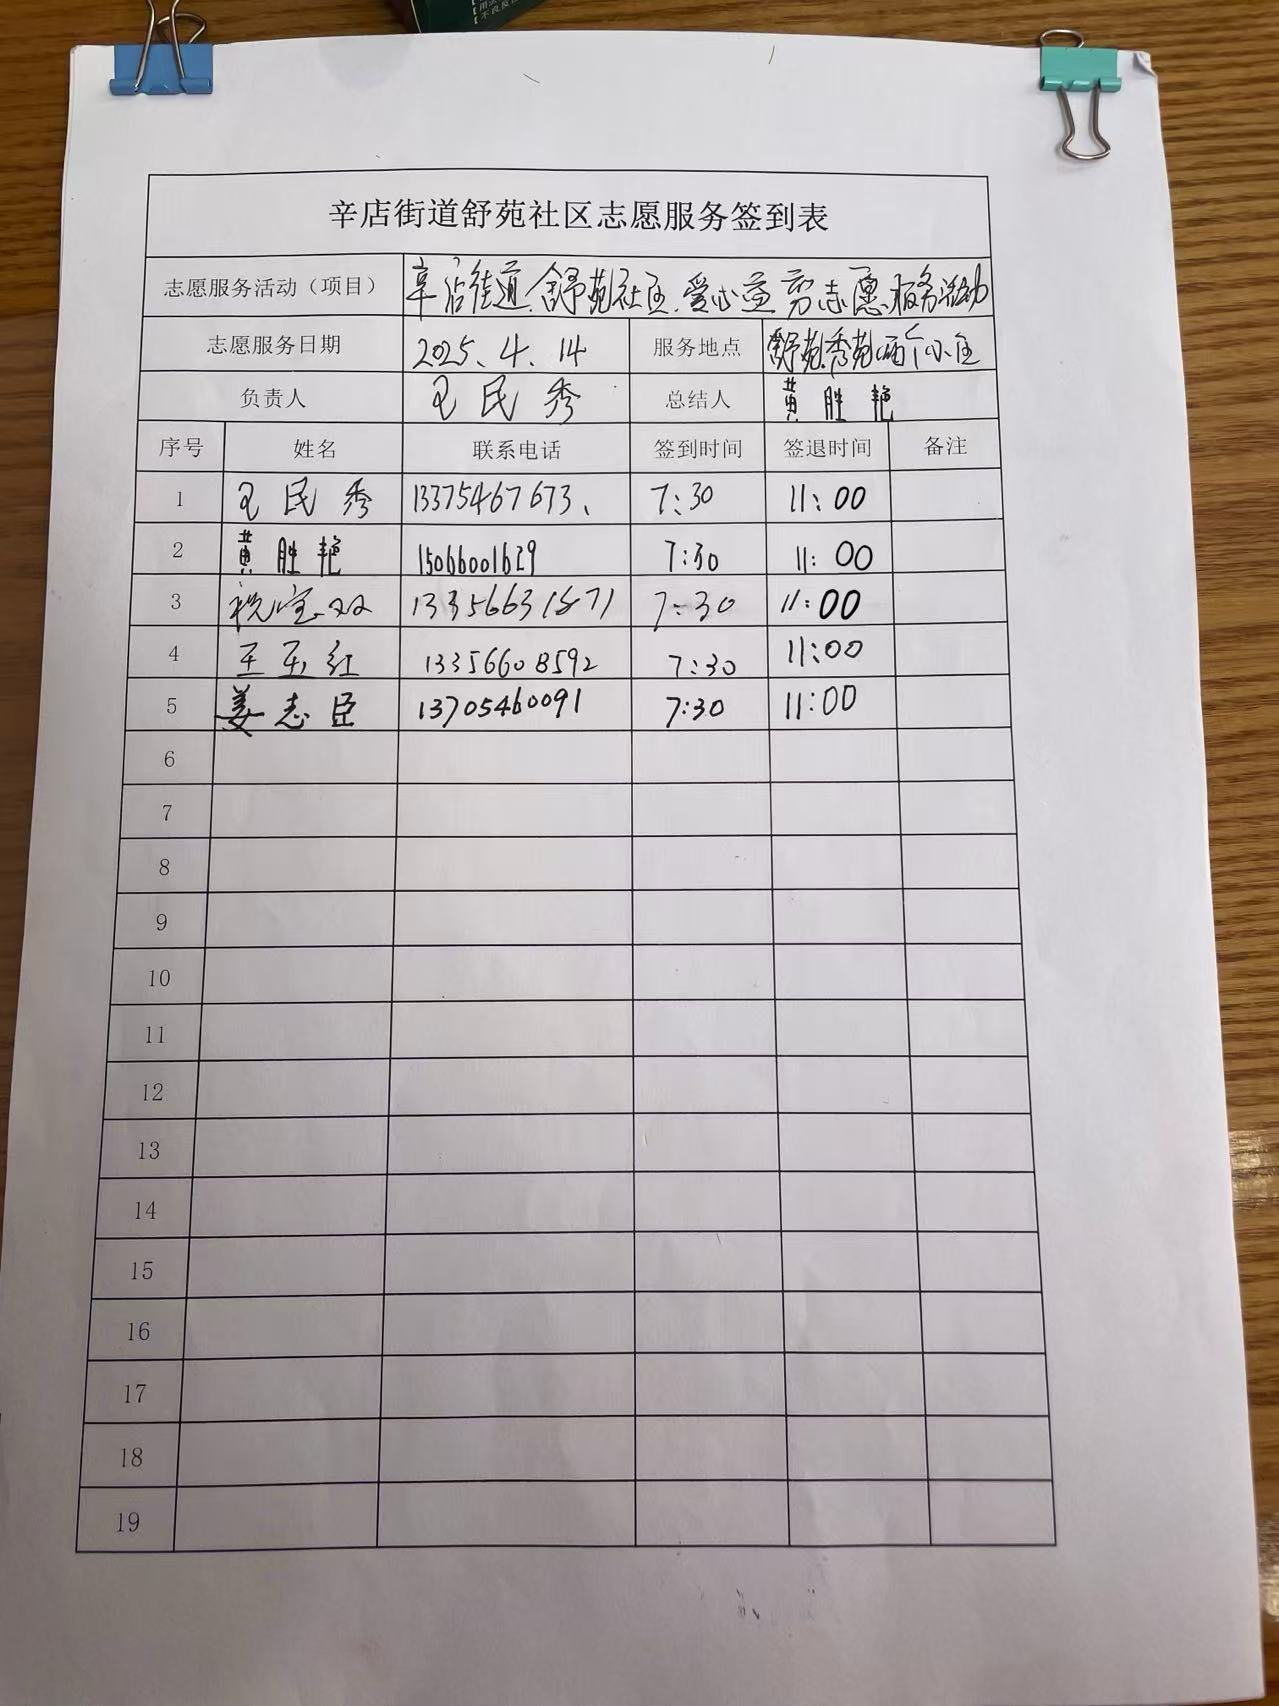 辛店街道舒苑社区志愿服务签到表
志愿服务活动（项目） 辛店街道舒苑社区爱心益剪志愿服务活动
志愿服务日期 2025、4、14 服务地点 舒苑、秀苑两个小区
负责人 王民秀 总结人 黄胜艳
序号 姓名 联系电话 签到时间 签退时间 备注
1 王民秀 13375467673、 7:30 11:00
2 黄胜艳 15066001629 7:30 11:00
3 祝宝双 13356631871 7:30 11:00
4 王玉红 13356608592 7:30 11:00
5 姜志臣 13705460091 7:30 11:00
6
7
8
9
10
11
12
13
14
15
16
17
18
19